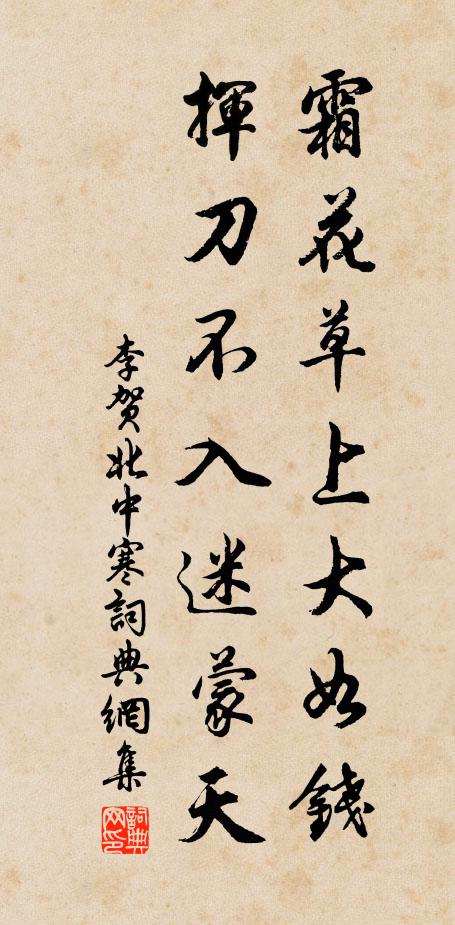 霜花草上大如錢
揮刀不入迷蒙天
李贺北中寒詞典網集
詞典網印